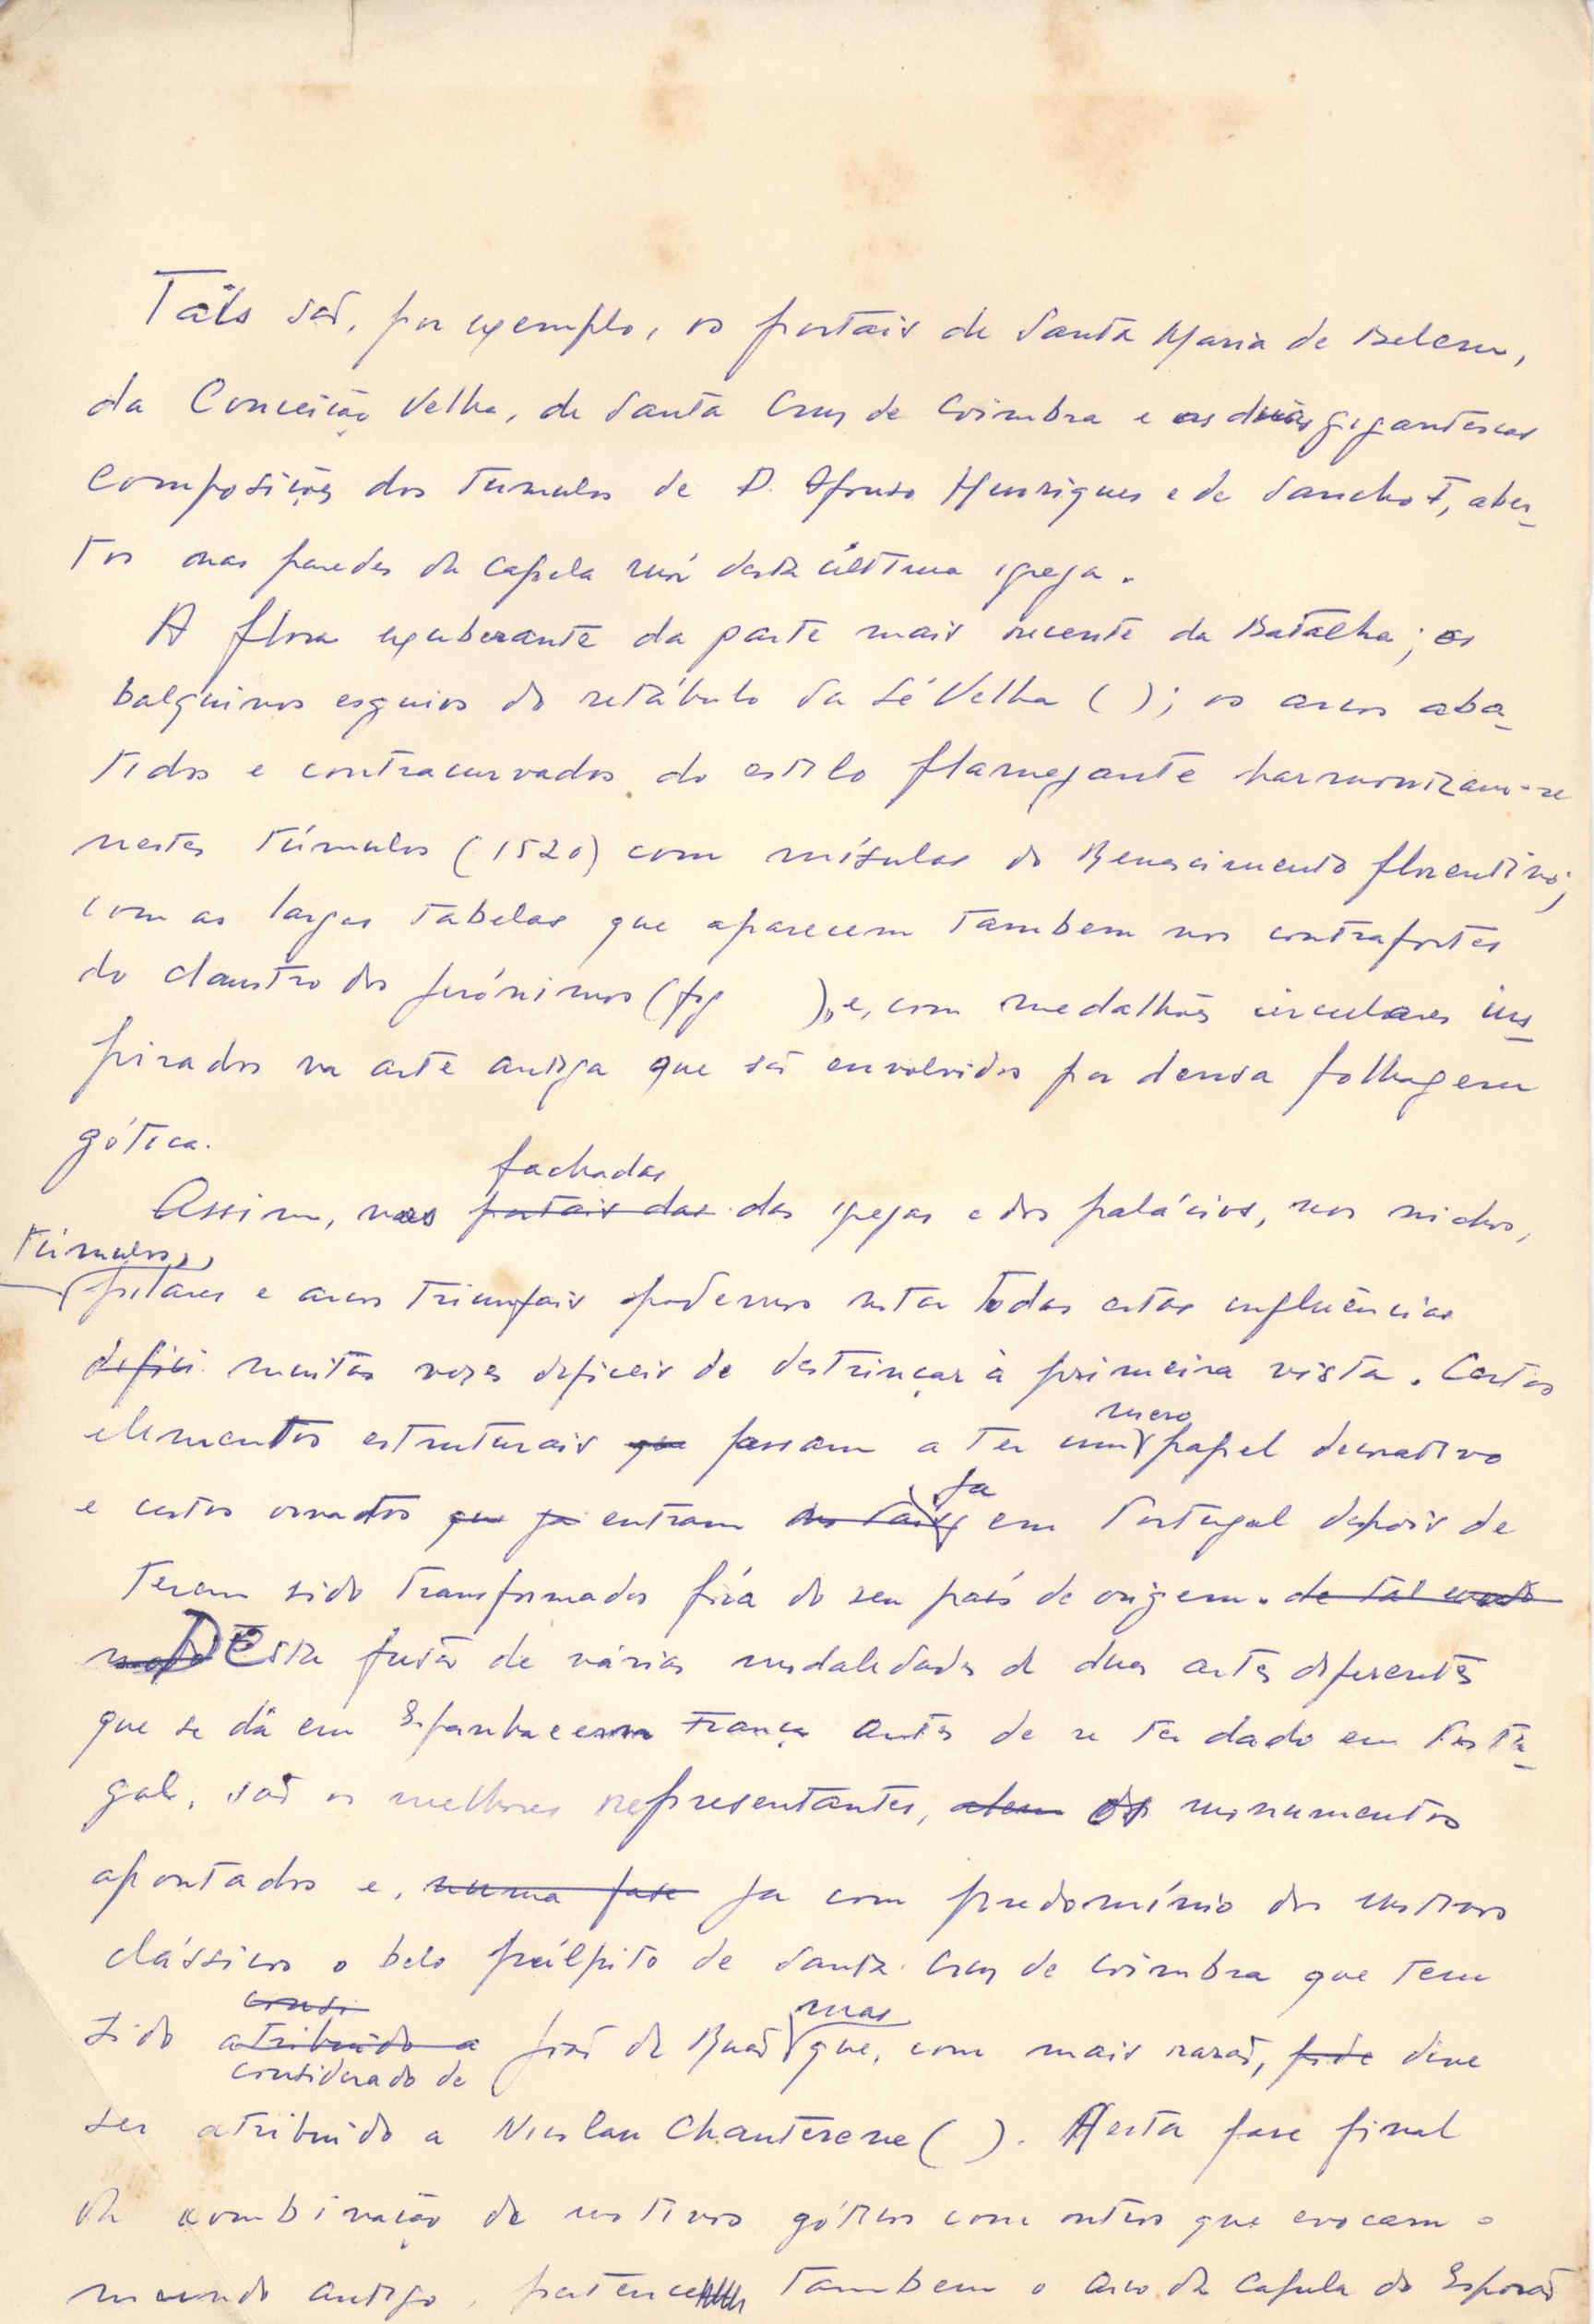 Tais são, por exemplo, os portais de Santa Maria de Belem,
da Conceição Velha, de Santa Cruz de Coimbra e as duas gigantescas
composições dos tumulos de D. Afonso Henriques e de Sancho I, aber-
tos nas paredes da capela mór desta última igreja.
A flora exuberante da parte mais recente da Batalha; os
balquinos esguios do retábulo da Sé Velha ( ); os arcos aba-
tidos e contracurvados do estilo flamejante harmonizam-se
nestes túmulos (1520) com mísulas do Renascimento florentino;
com as largas tabelas que aparecem tambem nos contrafortes
do claustro dos Jerónimos (fig ), e, com medalhões circulares ins-
pirados na arte antiga que são envolvidos por densa folhagem
gótica.
fachadas
Assim, nas portais das das igrejas e dos palácios, nos nichos,
túmulos,
pilares e arcos triunfais podemos notar todas estas influências
difici muitas vezes dificeis de destrinçar à primeira vista. Certos
mero
elementos estruturais que passam a ter um papel decorativo
já
e certos ornatos que já entram em Portugal depois de
terem sido transformados fóra do seu país de origem. de tal modo
Desta fusão de várias modalidades de duas artes diferentes
que se dá em Espanha e em França antes de se ter dado em Portu-
gal, são os melhores representantes, alem os monumentos
apontados e, numa fase já com predomínio dos motivos
clássicos o belo púlpito de Santa Cruz de Coimbra que tem
consi mas
sido atribuido a João de Ruão que, com mais razão, pode deve
considerado de
ser atribuido a Nicolau Chanterene ( ). A esta fase final
da combinação de motivos góticos com outros que evocam o
mundo antigo, pertence tambem o arco da capela do Esporão